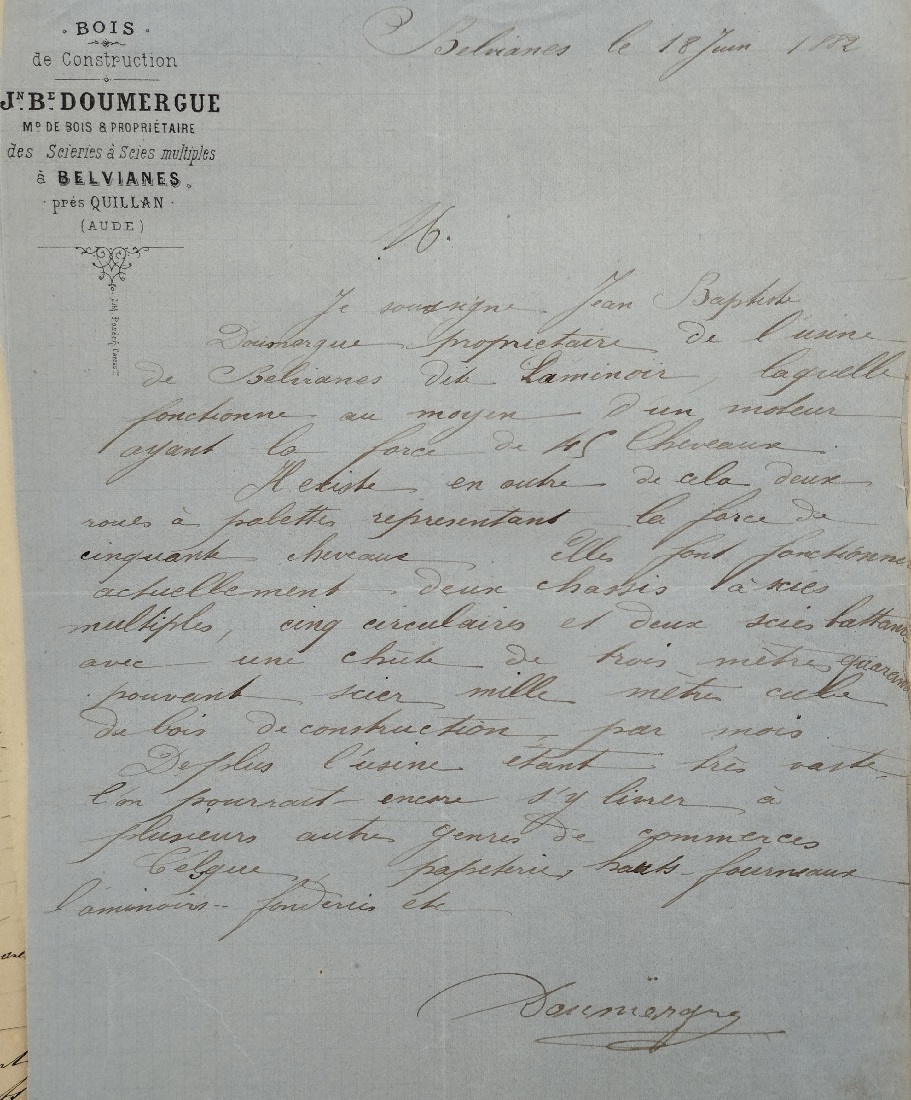 BOIS
de Construction
JN. BE. DOUMERGUE
MD DE BOIS & PROPRIÉTAIRE
des Scieries à Scies multiples
à BELVIANES
près QUILLAN
(AUDE)
Belvianes le 18 Juin 1882
M.
Je soussigne Jean Baptiste
Doumergue propriétaire de l'usine
de Belvianes dite Laminoir, laquelle
fonctionne au moyen d'un moteur
ayant la force de 45 Cheveaux
Il existe en outre de cela deux
roues à palettes representant la force de
cinquante cheveaux Elles font fonctionner
actuellement deux chassis à scies
multiples, cinq circulaires et deux scies battantes
avec une chûte de trois mètres quarante
pouvant scier mille mètres cube
de bois de construction, par mois
De plus l'usine étant très vaste
l'on pourrait encore s'y livrer à
plusieurs autre genres de commerces
Telsque, papeterie, hauts-fourneaux
laminoirs-- fonderies etc
Doumergue